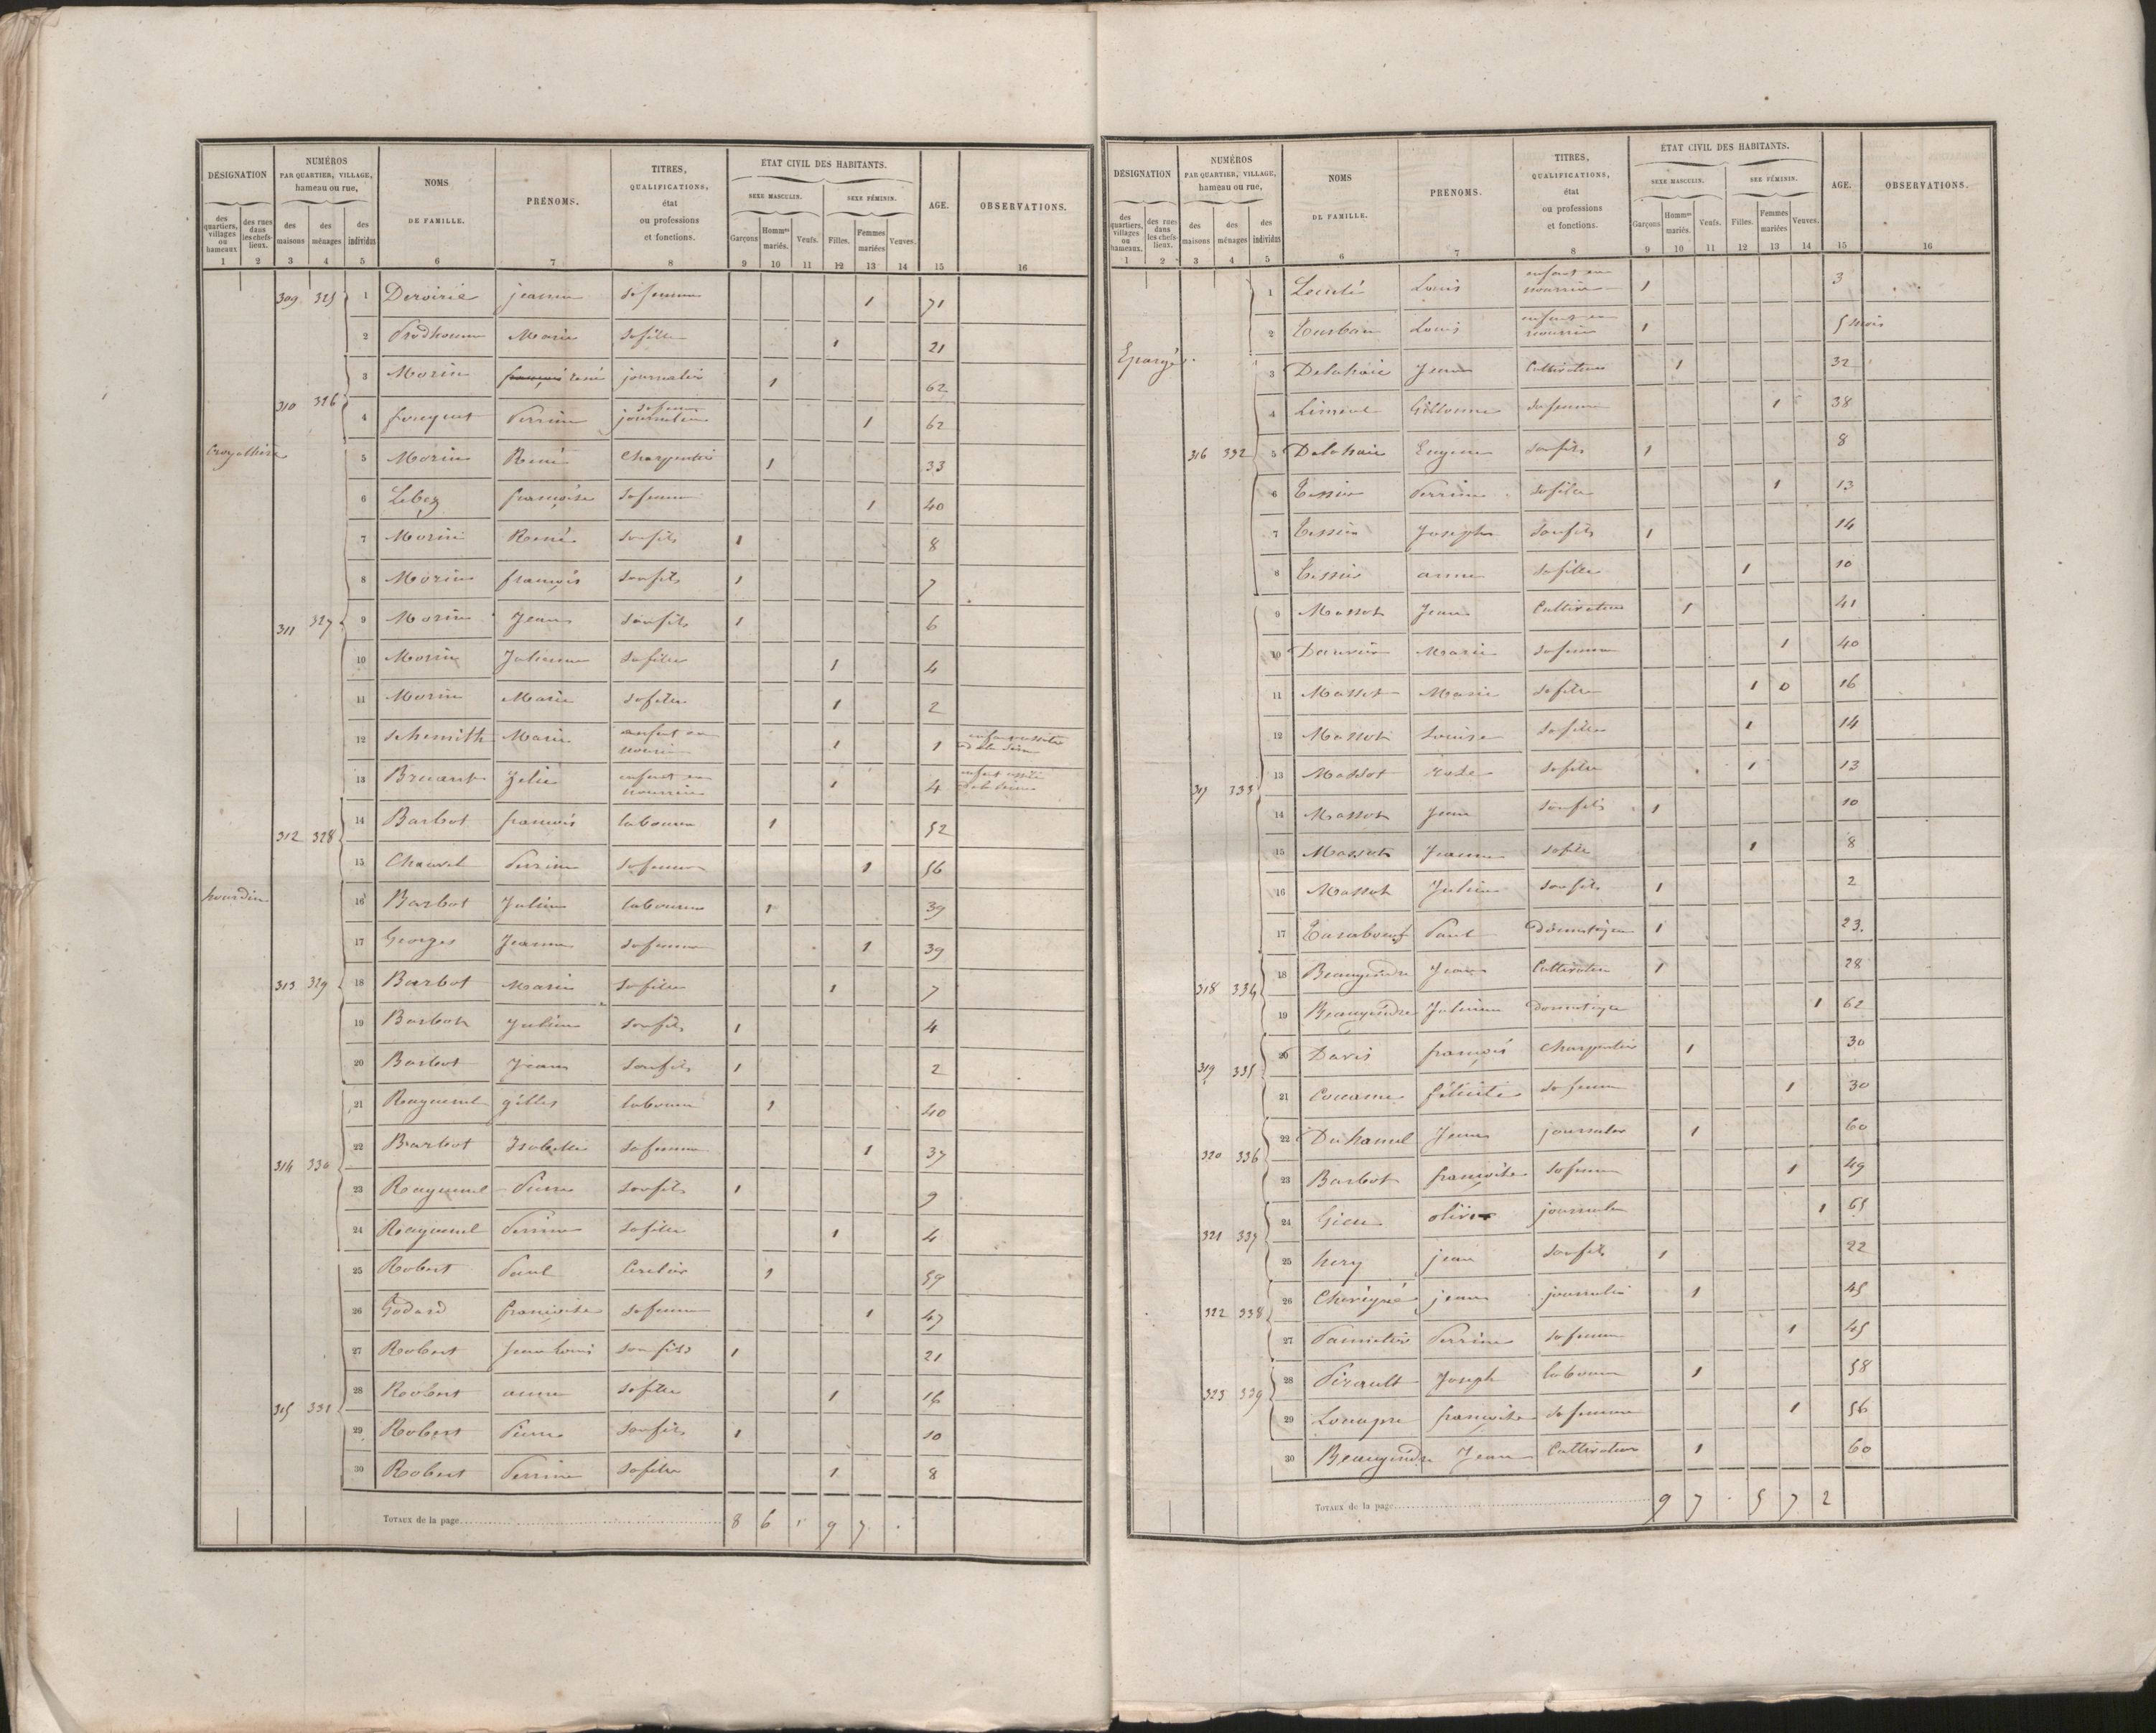 DÉSIGNATION
NUMÉROS
PAR QUARTIER, VILLAGE,
hameau ou rue,
NOMS
DE FAMILLE.
PRÉNOMS.
TITRES,
QUALIFICATIONS,
état
ou professions
et fonctions.
ÉTAT CIVIL DES HABITANTS.
SEXE MASCULIN.
SEXE FÉMININ.
AGE.
OBSERVATIONS.
des quartiers, villages ou hameaux
des rues dans les chefs-lieux.
des maisons
des ménages
des individus
Garçons
Hommes mariés.
Veufs.
Filles.
Femmes mariées
Veuves.
1 2 3 4 5 6 7 8 9 10 11 12 13 14 15 16
309 325 1 jeanne sa femme 1 71
2 Prodhomme Marie sa fille 1 21
310 326 3 Morin rené journalier 1 62
4 fouquet Perrine sa femme journalière 1 62
5 Morin René Charpentier 1 33
6 françoise sa femme 1 40
7 Morin René son fils 1 8
8 Morin françois son fils 1 7
311 327 9 Morin Jean son fils 1 6
10 Morin Julienne sa fille 1 4
11 Morin Marie sa fille 1 2
12 schemith Marie enfant en nourrice 1 1
13 Bruant Zélie enfant en nourrice 1 4
312 328 14 Barbot françois laboureur 1 52
15 Chauvel Perrine sa femme 1 56
hourdin
16 Barbot Julien laboureur 1 39
17 Georges Jeanne sa femme 1 39
313 329 18 Barbot Marie sa fille 1 7
19 Barbot Julien son fils 1 4
20 Barbot Jean son fils 1 2
21 Raguenel gilles laboureur 1 40
314 330 22 Barbot Isabelle sa femme 1 37
23 Raguenel Pierre son fils 1 9
24 Raguenel Perrine sa fille 1 4
25 Robert Paul 1 59
26 Godard françoise sa femme 1 47
27 Robert Jean Louis son fils 1 21
315 331 28 Robert anne sa fille 1 16
29 Robert Pierre son fils 1 10
30 Robert Perrine sa fille 1 8
TOTAUX de la page 8 6 9 7
DÉSIGNATION
NUMÉROS
PAR QUARTIER, VILLAGE,
hameau ou rue,
NOMS
DE FAMILLE.
PRÉNOMS.
TITRES,
QUALIFICATIONS,
état
ou professions
et fonctions.
ÉTAT CIVIL DES HABITANTS.
SEXE MASCULIN.
SEE FÉMININ.
AGE.
OBSERVATIONS.
des quartiers, villages ou hameaux.
des rues dans les chefs-lieux.
des maisons
des ménages
des individus
Garçons
Hommes mariés.
Veufs.
Filles.
Femmes mariées
Veuves.
1 2 3 4 5 6 7 8 9 10 11 12 13 14 15 16
1 Louis enfant en nourrice 1 3
2 Louis enfant en nourrice 1 5 mois
3 Delahaie Jean Cultivateur 1 32
4 sa femme 1 38
316 332 5 Delahaie Eugene son fils 1 8
6 Tessier Perrine sa fille 1 13
7 Tessier Joseph son fils 1 14
8 Tessier anne sa fille 1 10
9 Massot Jean Cultivateur 1 41
10 Marie sa femme 1 40
11 Massot Marie sa fille 1 0 16
12 Massot Louise sa fille 1 14
317 333 13 Massot rose sa fille 1 13
14 Massot Jean son fils 1 10
15 Massot Jeanne sa fille 1 8
16 Massot Julien son fils 1 2
17 Paul domestique 1 23
318 334 18 Beaugendre Jean Cultivateur 1 28
19 Beaugendre Julienne domestique 1 62
319 335 20 Davis françois Charpentier 1 30
21 félicité sa femme 1 30
320 336 22 Duhamel Jean journalier 1 60
23 Barbot françoise sa femme 1 49
321 337 24 journalière 1 65
25 hery jean son fils 1 22
322 338 26 jean journalier 1 45
27 Perrine sa femme 1 45
323 339 28 Pirault Joseph laboureur 1 58
29 françoise sa femme 1 56
30 Beaugendre Jean Cultivateur 1 60
TOTAUX de la page 9 7 5 7 2